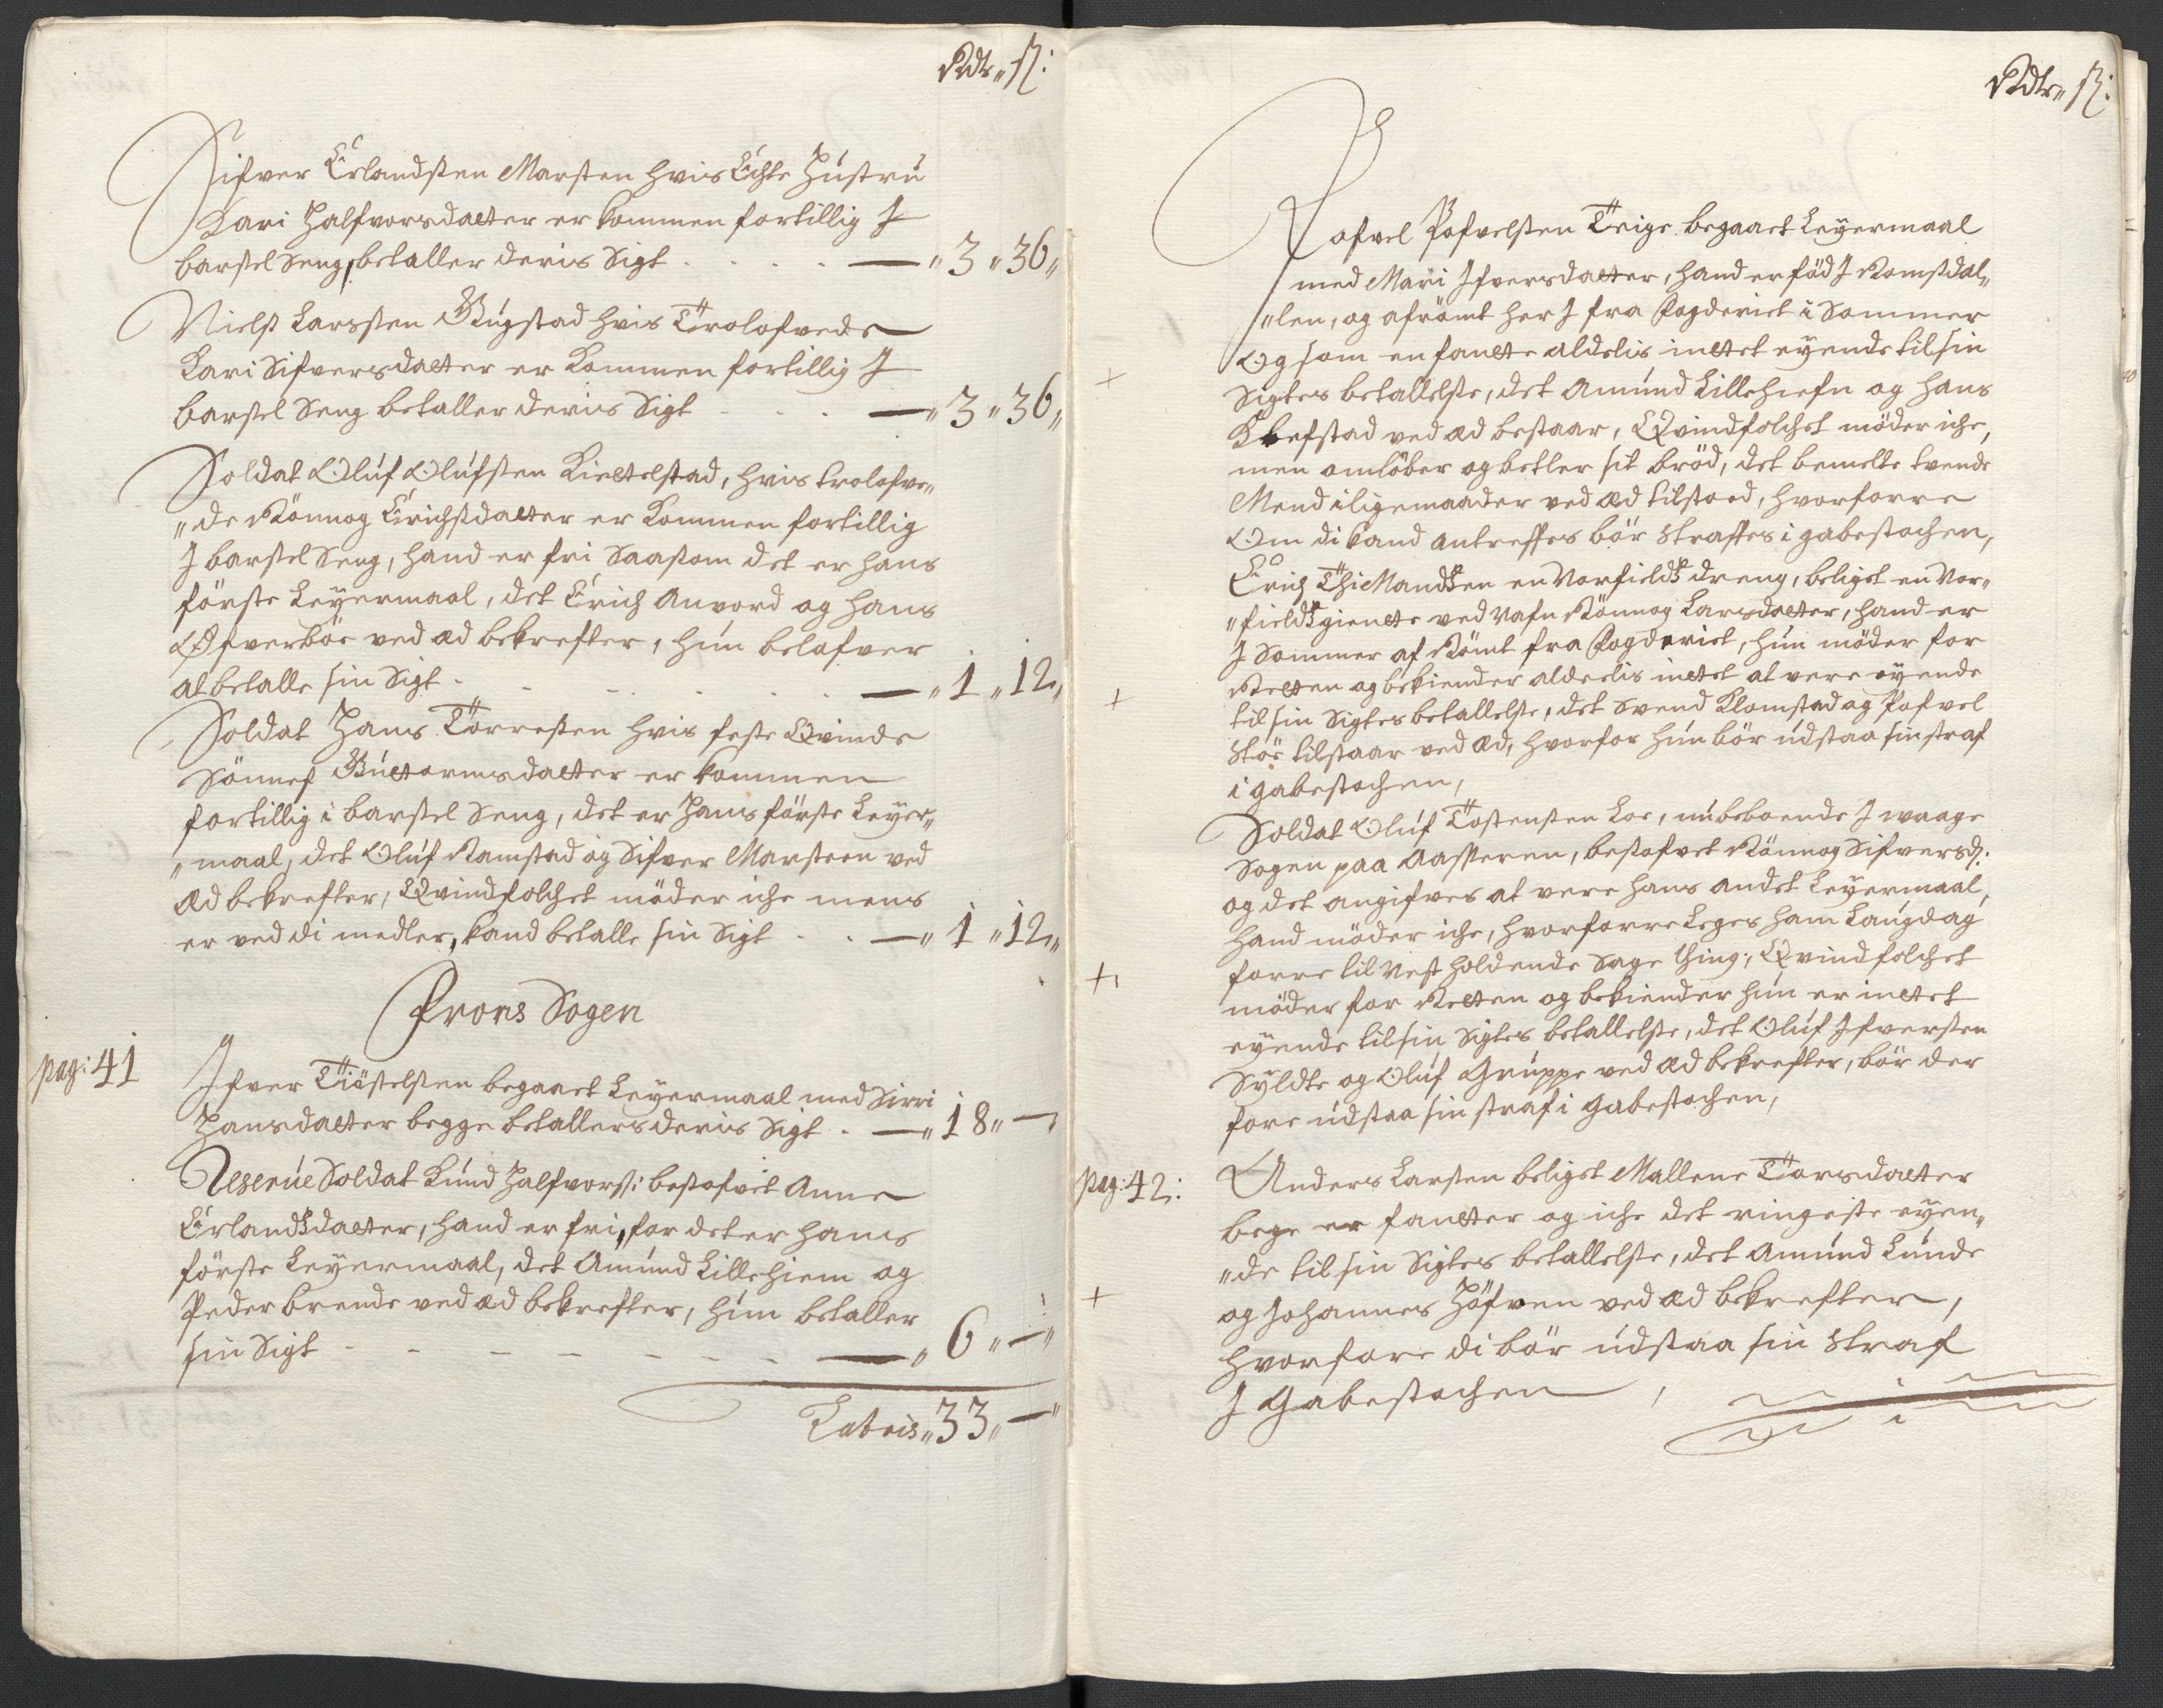 Rdr„ ß:
Sifver Erlandsten Marsten hvis Echte Hústrú
Kari Halfvorsdatter er kommen fortillig J
barsel Seng, betaller deris Sigt — „3„36„
Nielß Larssten Búgstad hvis Trolofvede
Kari Sifversdatter er Kommen fortillig J
barsel Seng betaller deris Sigt — „3„36„
Soldat Olúf Olúfsten Kieltelstad, hvis trolofve„
„de Rönnog Erichsdatter er Kommen fortillig
J barsel Seng, hand er fri Saasom det er hans
förste Leyermaal, det Erich Anvord og hans
Öfverböe ved æd bekrefter, hún belofver
at betalle sin Sigt — „1„12„
Soldat Hans Torresten hvis feste Qvinde
Sönnef Gúttormsdatter er kommen
fortillig i barsel Seng, det er Hans förste Leyer„
„maal, det Olúf Ramstad og Sifver Marsteen ved
æd bekrefter, Qvindfolchet möder iche mens
er ved di medler, kand betalle sin Sigt — „1„12„
Frons Sogen
pag: 41
Ifver Tiöstelsten begaaet Leyermaal med Sirri
Hansdatter begge betallers deris Sigt. — „18„ —
Reserúe Soldat Knúd Halfvorsß: besofvet Anne
Erlandsdatter, hand er fri, for det er hans
förste Leyermaal, det Amúnd Lillehiem og
Peder brende ved æd bekrefter, hún betaller
sin Sigt — „6„ —„
Lateris„33„ —„
Rdr„ ß:
Pofvel Pofvelsten Teige begaaet Leyermaal
med Mari Ifversdatter, hand er föd J Romsdal„
„len, og afrömt her J fra fogderiet i Sommer
Og som en fantte aldelis inttet eyende til sin
Sigtes betallelse, det Amúnd Lillehiefn og Hans
Klefstad ved æd bestaar, Qvindfolchet möder iche,
men omlöber og betler sit bröd, det bemelte tvende
Mend iligemaader ved æd tilstoed, hvorforre
Om di kand antreffes bör Straffes i gabestochen,
+
Erich Thi Mandsen en Norfields dreng, beligt en Nor„
„fields giente ved Nafn Rönnog Larsdatter, hand er
J Sommer af Römt fra Fogderiet, hún möder for
Retten og bekiender aldeelis inttet at vere eyende
til sin Sigtes betallelse, det Svend Klomstad og Pofvel
Stöe tilstaar ved æd, hvorfor hún bör údstaa sin straf
i gabestochen,
+
Soldat Olúf Tostensten Loe, nú beboende J waage
Sogen paa Aasseren, besofvet Rönnog Sifversd:
og det angifves at vere hans andet Leyermaal,
hand möder iche, hvorforre Leges ham Laúgdag
forre til Nest holdende Sage thing:, Qvindfolchet
möder for Retten og bekiender hún er inttet
eyende til sin Sigtes betallelse, det Olúf Ifversten
Syldte og Olúf Grúppe ved æd bekrefter, bör der
fore údstaa sin straf i Gabestochen,
+
pag: 42:
Anders Larsten beligt Mallene Torsdatter
bege er fantter og iche det ringeste eyen„
„de til sin Sigtes betallelse, det Amúnd Lúnde
og Johannes Höfven ved æd bekrefter,
hvorfore di bör údstaa sin Straf
J Gabestochen,
+